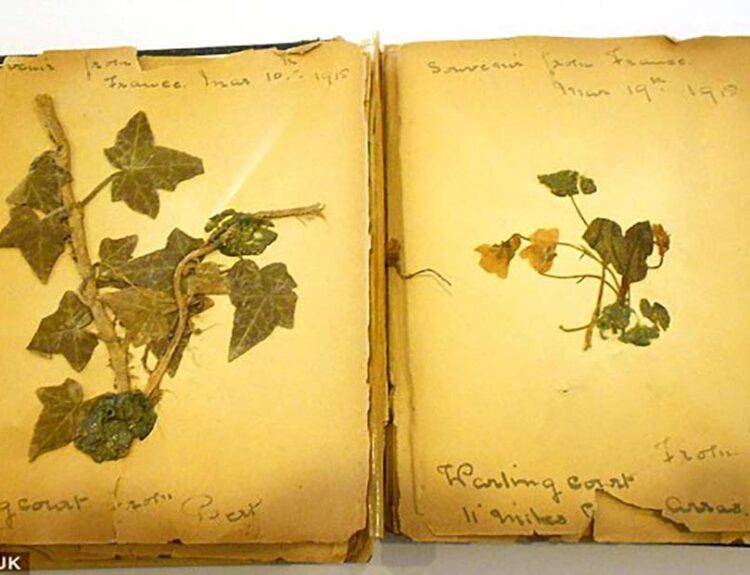 from
France. Mar 10th 1915
gcourt from Bert
Souvenir from France.
Mar 19th 1915
From
Warlingcourt
11 miles
Arras.
UK